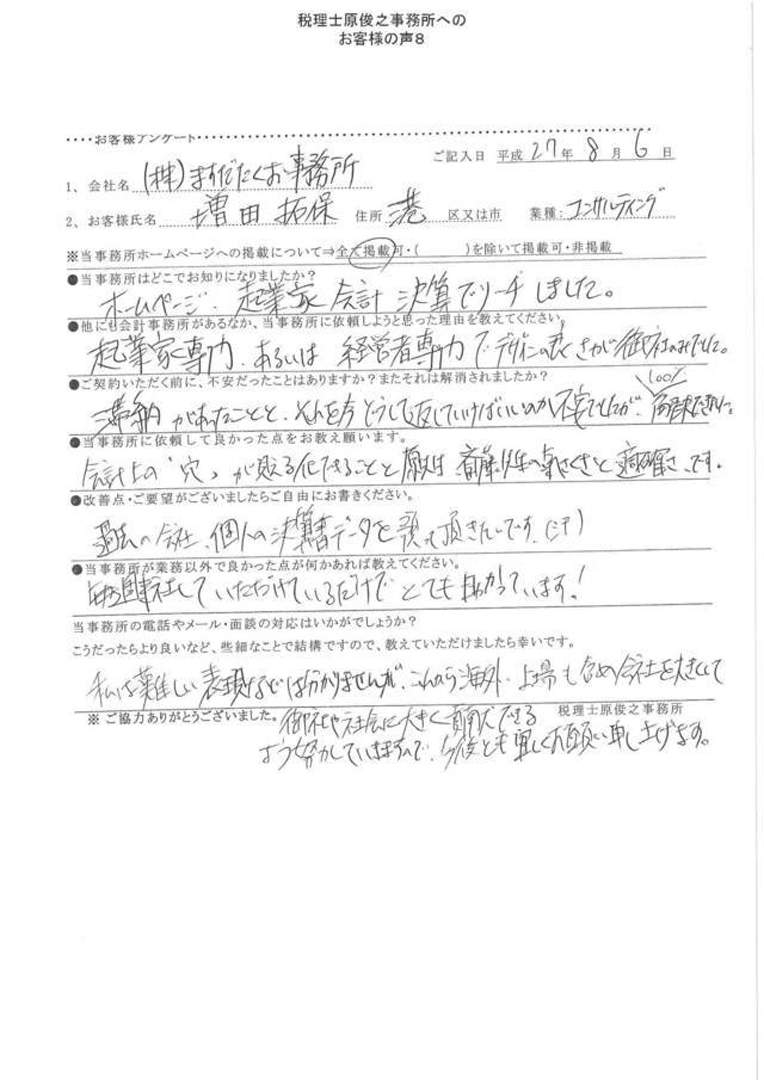 税理士原俊之事務所への
お客様の声8
・・・・お客様アンケート・・・・・・・・・・・・・・・・・・・・・・・・・・・・・・・・・・・・・・・・
ご記入日 平成 27年 8月 6日
1、会社名 (株)ますだたくお事務所
2、お客様氏名 増田拓保 住所 港 区又は市 業種: コンサルティング
※当事務所ホームページへの掲載について⇒全て掲載可・( )を除いて掲載可・非掲載
●当事務所はどこでお知りになりましたか?
ホームページ、起業家 会計 決算でリーチしました。
●他にも会計事務所があるなか、当事務所に依頼しようと思った理由を教えてください。
起業家専門、あるいは 経営者専門でデザインの良さが御社のみでした。
●ご契約いただく前に、不安だったことはありますか?またそれは解消されましたか?
滞納があったことと、それを今どうして返していけばいいのか不安でしたが、100%解決できました。
●当事務所に依頼して良かった点をお教え願います。
会計上の"穴"が できることと
●改善点・ご要望がございましたらご自由にお書きください。
過去の会社、個人の決算書データを 頂きたいです。
●当事務所が業務以外で良かった点が何かあれば教えてください。
していただけているだけで とても助かっています!
当事務所の電話やメール・面談の対応はいかがでしょうか?
こうだったらより良いなど、些細なことで結構ですので、教えていただけましたら幸いです。
私は難しい表現などは分かりませんが、これから海外、上場も含め会社を大きくして
※ご協力ありがとうございました。 御社や社会に大きく貢献できる 税理士原俊之事務所
よう努力していきますので、今後とも宜しくお願い申し上げます。